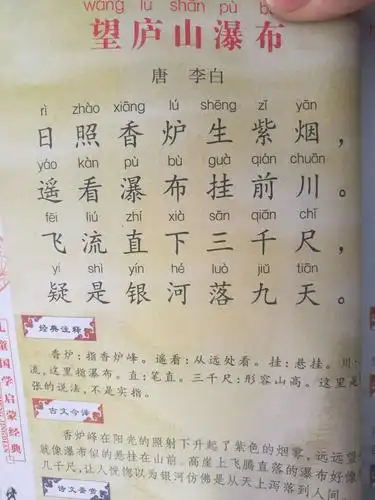 wàng lú shān pù
望庐山瀑布
唐 李白
rì zhào xiāng lú shēng zǐ yān
日照香炉生紫烟，
yáo kàn pù bù guà qián chuān
遥看瀑布挂前川。
fēi liú zhí xià sān qiān chǐ
飞流直下三千尺，
yí shì yín hé luò jiǔ tiān
疑是银河落九天。
经典注释
香炉：指香炉峰。遥看：从远处看。挂：悬挂。川：
流，这里指瀑布。直：笔直。三千尺：形容山高。这里是
张的说法，不是实指。
古文今译
香炉峰在阳光的照射下升起了紫色的烟雾，远远望
就像瀑布似的悬挂在山前。高崖上飞腾直落的瀑布好像
几千尺，让人恍惚以为银河仿佛是从天上泻落到人间
诗文鉴赏
儿童国学启蒙经典